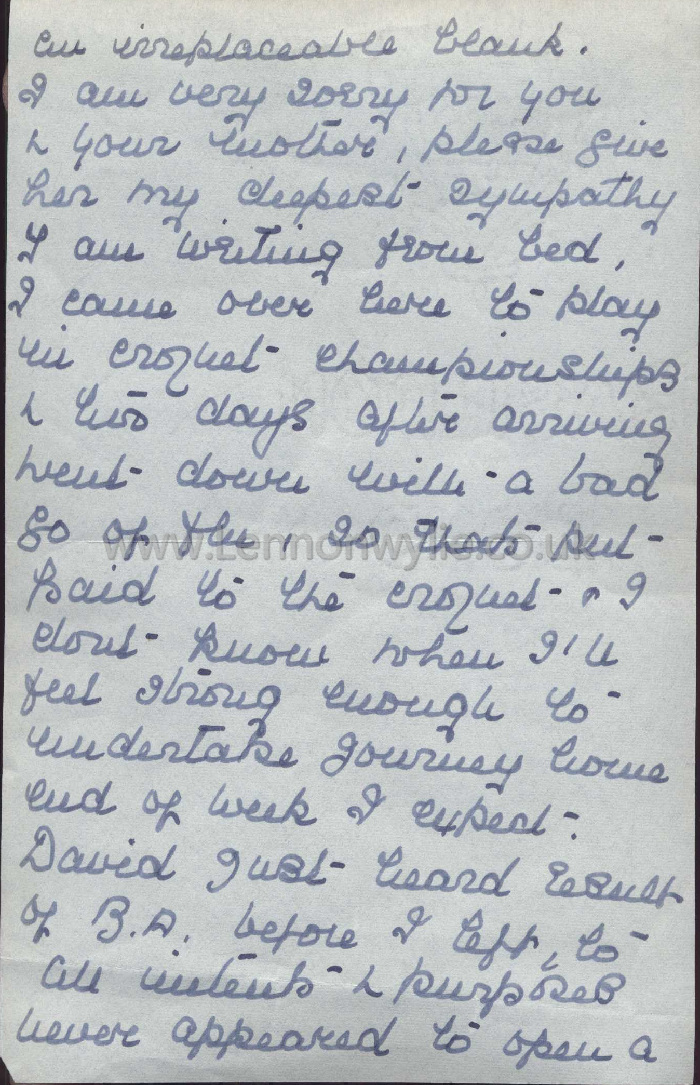 an irreplaceable blank.
I am very sorry for you
& your mother, please give
her my deepest sympathy
I am writing from bed,
I came over here to play
in croquet championships
& two days after arriving
went down with a bad
go of flu, so thats put
paid to the croquet & I
dont know when I'll
feel strong enough to
undertake journey home
end of week I expect.
David just heard result
of B.A. before I left, to
all intents & purposes
never appeared to open a
www.Lennonwylie.co.uk